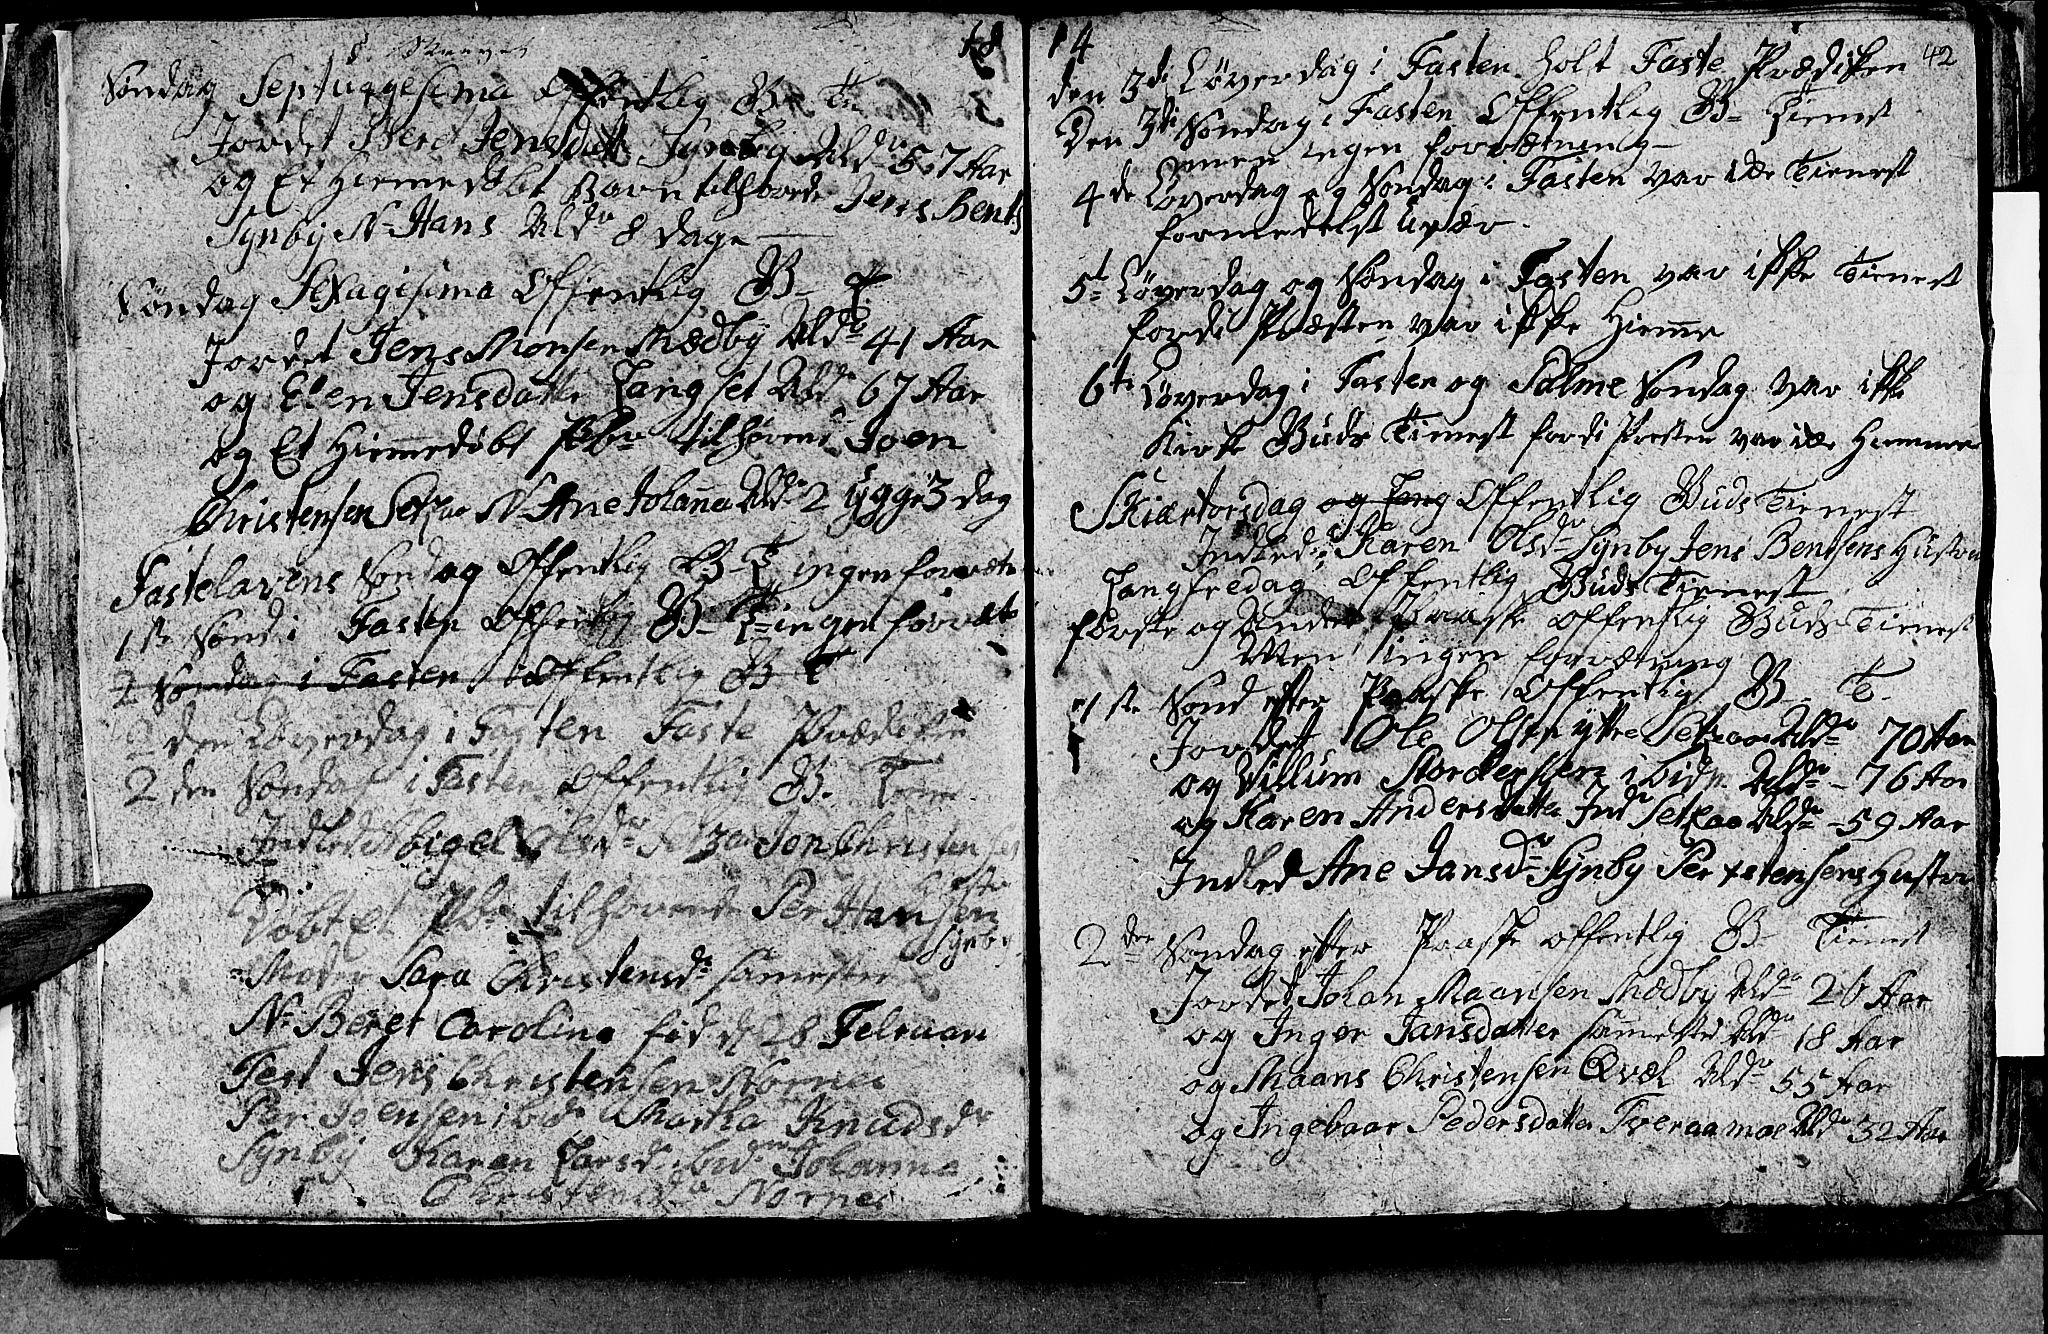 18
Søndag Septuggesima Offentlig B. Tn
Jordet Beret Jensdatt Synby Aldr 57 Aar
og Et Hiemedøbt Barn tilhørende Jens Bents
Synby N. Hans Aldr 8 dage
Søndag Sexagisima Offentlig B. T.
Jordet Jens Monsen Mædby Aldr 41 Aar
og Elen Jensdatter Langset Aldr 67 Aar
og Et Hiemmedøbt tilhørende Joen
Christensen Setraa N. Ane Johanna Aldr 2 Ugge 3 dag
Fastelavens Søndag Offentlig B. T. ingen forretn
1ste Sønd i Fasten Offentlig B. T. ingen forret
2 Søndag i Fasten Offentlig B T
2den Løverdag i Fasten Faste Prædiken
2den Søndag i Fasten Offentlig B. Tiene
Indled Abigel Olsdr Setraa Jon Christensens
Hustr
Døbt Et tilhørende Per Hansen
Synby
Moder Sara Christensdr sammested
N. Beret Carolina fød d. 28 Februari
Test Jens Christensen Nornes
Per Joensen ibd Martha Knudsdr
Synby Karen Larsdr ibd Johanna
Christensdr Nornes
14
42
den 3die Løverdag i Fasten holt Faste Prædiken
Den 3die Søndag i Fasten Offentlig B. Tienest
men ingen forretning
4de Løverdag og Søndag i Fasten var ike Tienest
formedelst Uvær
5t Løverdag og Søndag i Fasten var ikke Tienest
fordi Præsten var ikke Hieme
6te Løverdag i Fasten og Palme Søndag var ikke
Kirke Buds Tienest fordi Presten var ike Hiemme
Skiærtorsdag og Lang Offentlig Buds Tienest
Indled Karen Olsdr Synby Jens Bentsens Hustru
Langfredag Offentlig Buds Tienest
første og Anden Paaske Offentlig Buds Tienest
Men ingen forretning
1ste Sønd efter Paaske Offentlig B. T.
Jordet Ole Olsen ytre Setraa Aldr 70 Aar
og Villum ibidm Aldr 76 Aar
og Karen Andersdatter Indr Setraa Aldr 59 Aar
Indled Ane Jansdr Synby Per xstensens Hustru
2den Søndag efter Paaske offentlig B. Tienest
Jordet Johan Maansen Mædby Aldr 26 Aar
og Inger Jansdatter sammested Aldr 18 Aar
og Maans Christensen Qvæl Aldr 55 Aar
og Ingebaar Pedersdatter Tveraamoe Aldr 32 Aar